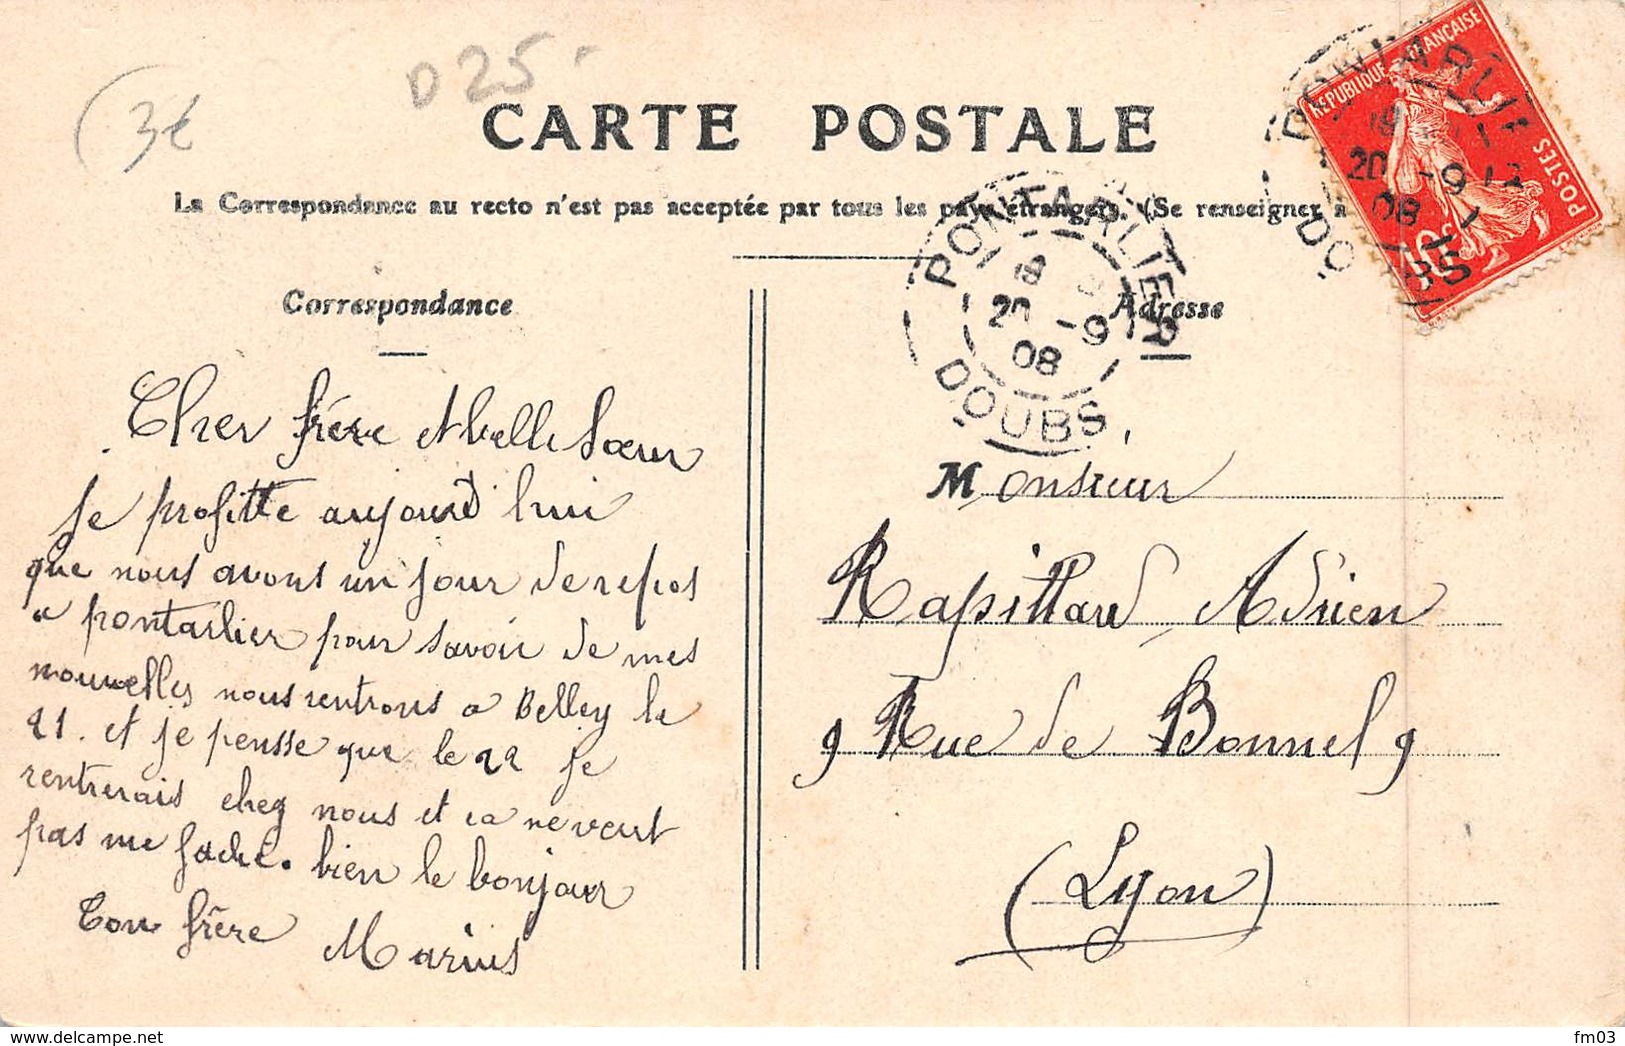 (3€
D 25-
CARTE POSTALE
La Correspondance au recto n'est pas acceptée par tous les pays étrangers. (Se renseigner à
RÉPUBLIQUE FRANÇAISE
POSTES
10c
PONTARLIER
18
20 -9
08
DOUBS
PONTARLIER
18
20 -9
08
DOUBS
Correspondance
Adresse
Cher frère et belle Sœur
Je profitte aujourd hui
que nous avons un jour de repos
a pontarlier pour savoir de mes
nouvelles nous rentrons a Belley le
21. et je pensse que le 22 je
rentrerais chez nous et ca ne veut
pas me faché. bien le bonjour
Ton frère Marius
Monsieur
Rapillard Adrien
9 Rue de Bonnel 9
(Lyon)
delcampe.net
fm03